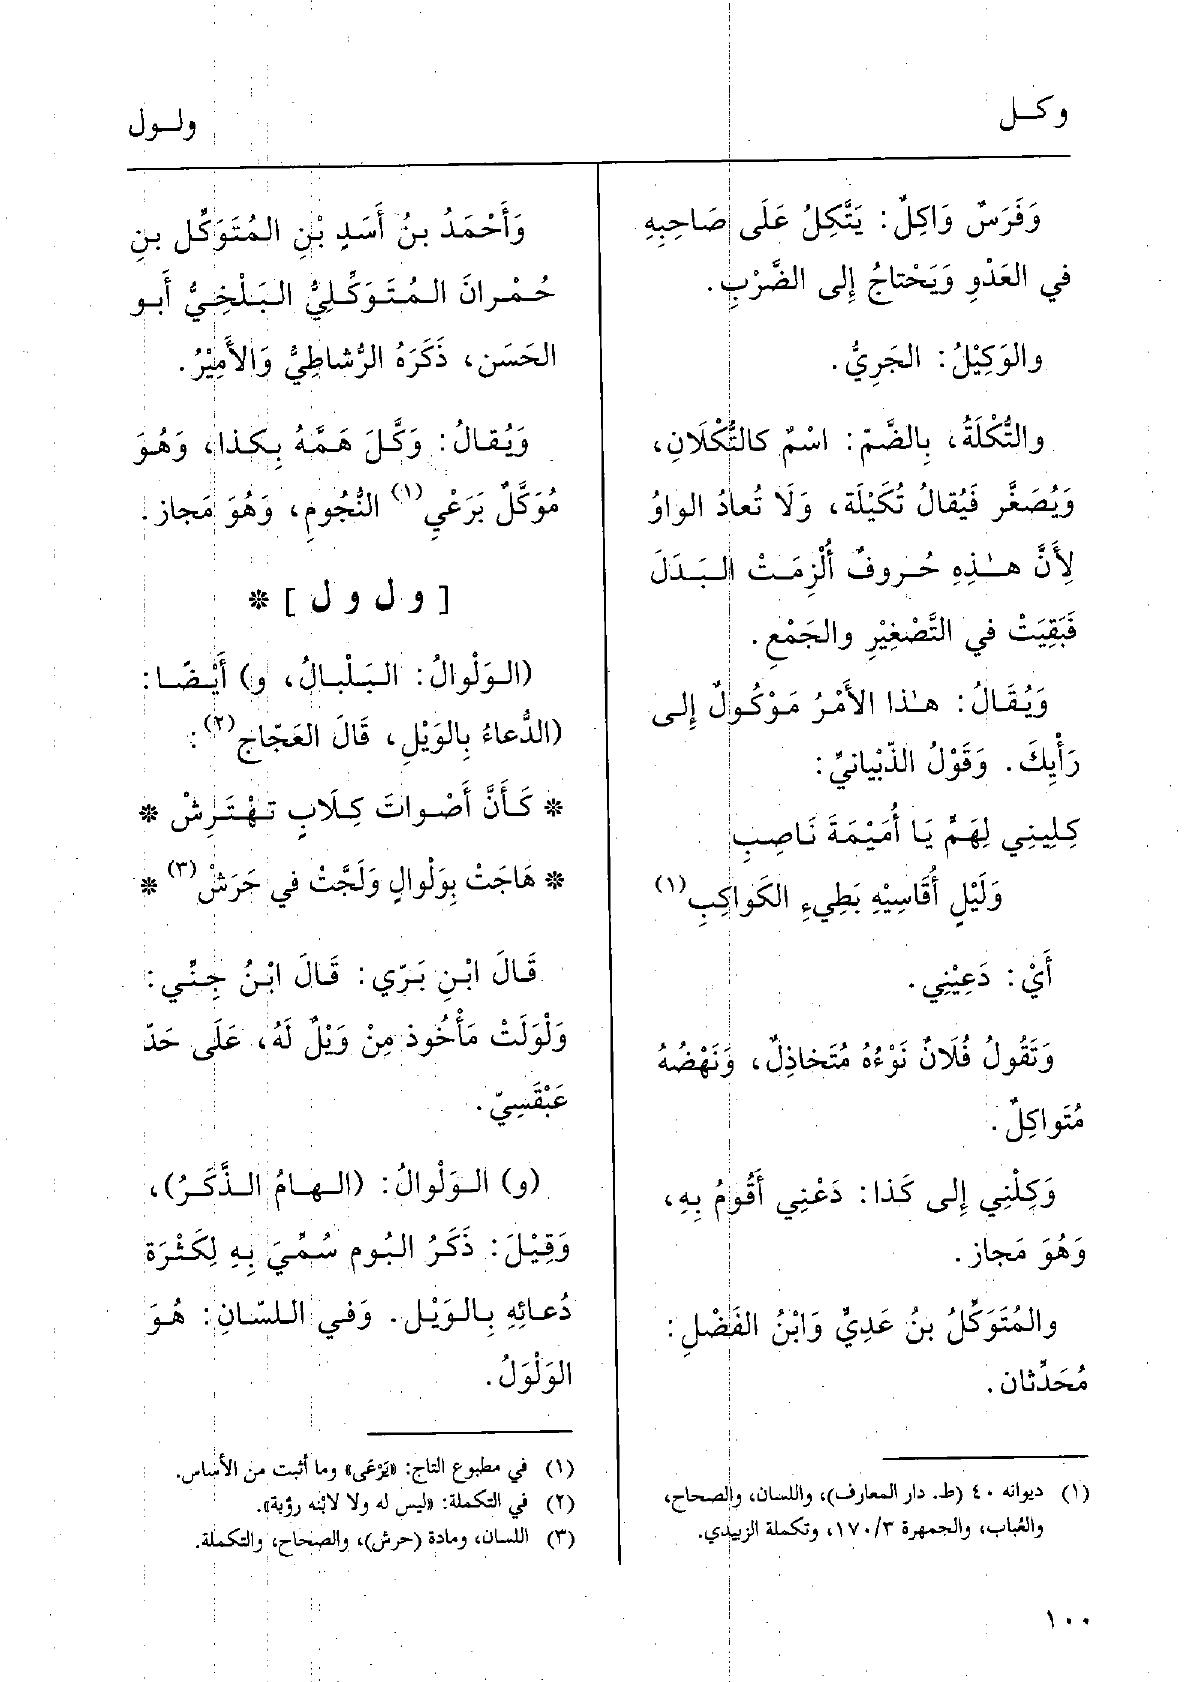 وكـل
ولـول
وَفَرَسٌ وَاكِلٌ: يَتَّكِلُ عَلَى صَاحِبِهِ
في العَدْوِ وَيَحْتاجُ إِلى الضَّرْبِ.
والوَكِيْلُ: الجَرِيُّ.
والتُّكْلَةُ، بِالضَّمّ: اسْمٌ كالتُّكْلَانِ،
وَيُصَغَّر فَيُقالُ تُكَيْلَة، وَلَا تُعادُ الواوُ
لِأَنَّ هـٰذِهِ حُروفٌ أُلْزِمَتْ البَدَلَ
فَبَقِيَتْ في التَّصْغِيْرِ والجَمْعِ.
وَيُقَالُ: هـٰذا الأَمْرُ مَوْكُولٌ إِلى
رَأْيِكَ. وَقَوْلُ الذّبْيانيّ:
كِلِينِي لِهَمٍّ يَا أُمَيْمَةَ نَاصِبِ
وَلَيْلٍ أُقَاسِيْهِ بَطِيءِ الكَواكِبِ(١)
أَيْ: دَعِيْنِي.
وَتَقُولُ فُلَانٌ نَوْءُهُ مُتَخاذِلٌ، وَنَهْضُهُ
مُتَواكِلٌ.
وَكِلْنِي إِلى كَذا: دَعْنِي أَقُومُ بِهِ،
وَهُوَ مَجاز.
والمُتَوَكِّلُ بنُ عَدِيٍّ وَابْنُ الفَضْلِ:
مُحَدِّثان.
(١) ديوانه ٤٠ (ط. دار المعارف)، واللسان، والصحاح،
والعُباب، والجمهرة ١٧٠/٣، وتكملة الزبيدي.
وَأَحْمَدُ بنُ أَسَدِ بْنِ المُتَوَكِّل بنِ
حُمْرانَ المُتَوَكِّلِيُّ البَلْخِيُّ أَبو
الحَسَن، ذَكَرَهُ الرُّشاطِيُّ وَالأَمِيْرُ.
وَيُقالُ: وَكَّلَ هَمَّهُ بِكذا، وَهُوَ
مُوَكَّلٌ بَرَعْيِ(١) النُّجُومِ، وَهُوَ مَجاز.
[ و ل و ل ] *
(الوَلْوالُ: البَلْبالُ، و) أَيْضًا:
(الدُّعاءُ بِالوَيْلِ، قَالَ العَجّاج(٢):
* كَأَنَّ أَصْواتَ كِلَابٍ تهْتَرِشْ *
* هَاجَتْ بِوَلْوالٍ وَلَجَّتْ في حَرَشْ(٣) *
قَالَ ابْنِ بَرّي: قَالَ ابْنُ جِنّي:
وَلْوَلَتْ مَأْخُوذ مِنْ وَيْلٌ لَهُ، عَلَى حَدّ
عَبْقَسِيّ.
(و) الوَلْوالُ: (الهامُ الذَّكَرُ)،
وَقِيْلَ: ذَكَرُ البُوم سُمِّيَ بِهِ لِكَثْرَة
دُعائِهِ بِالوَيْل. وَفي اللسّانِ: هُوَ
الوَلْوَلُ.
(١) في مطبوع التاج: «يَرْعَى» وما أثبت من الأساس.
(٢) في التكملة: «ليس له ولا لابنه رؤبة».
(٣) اللسان، ومادة (حرش)، والصحاح، والتكملة.
١٠٠